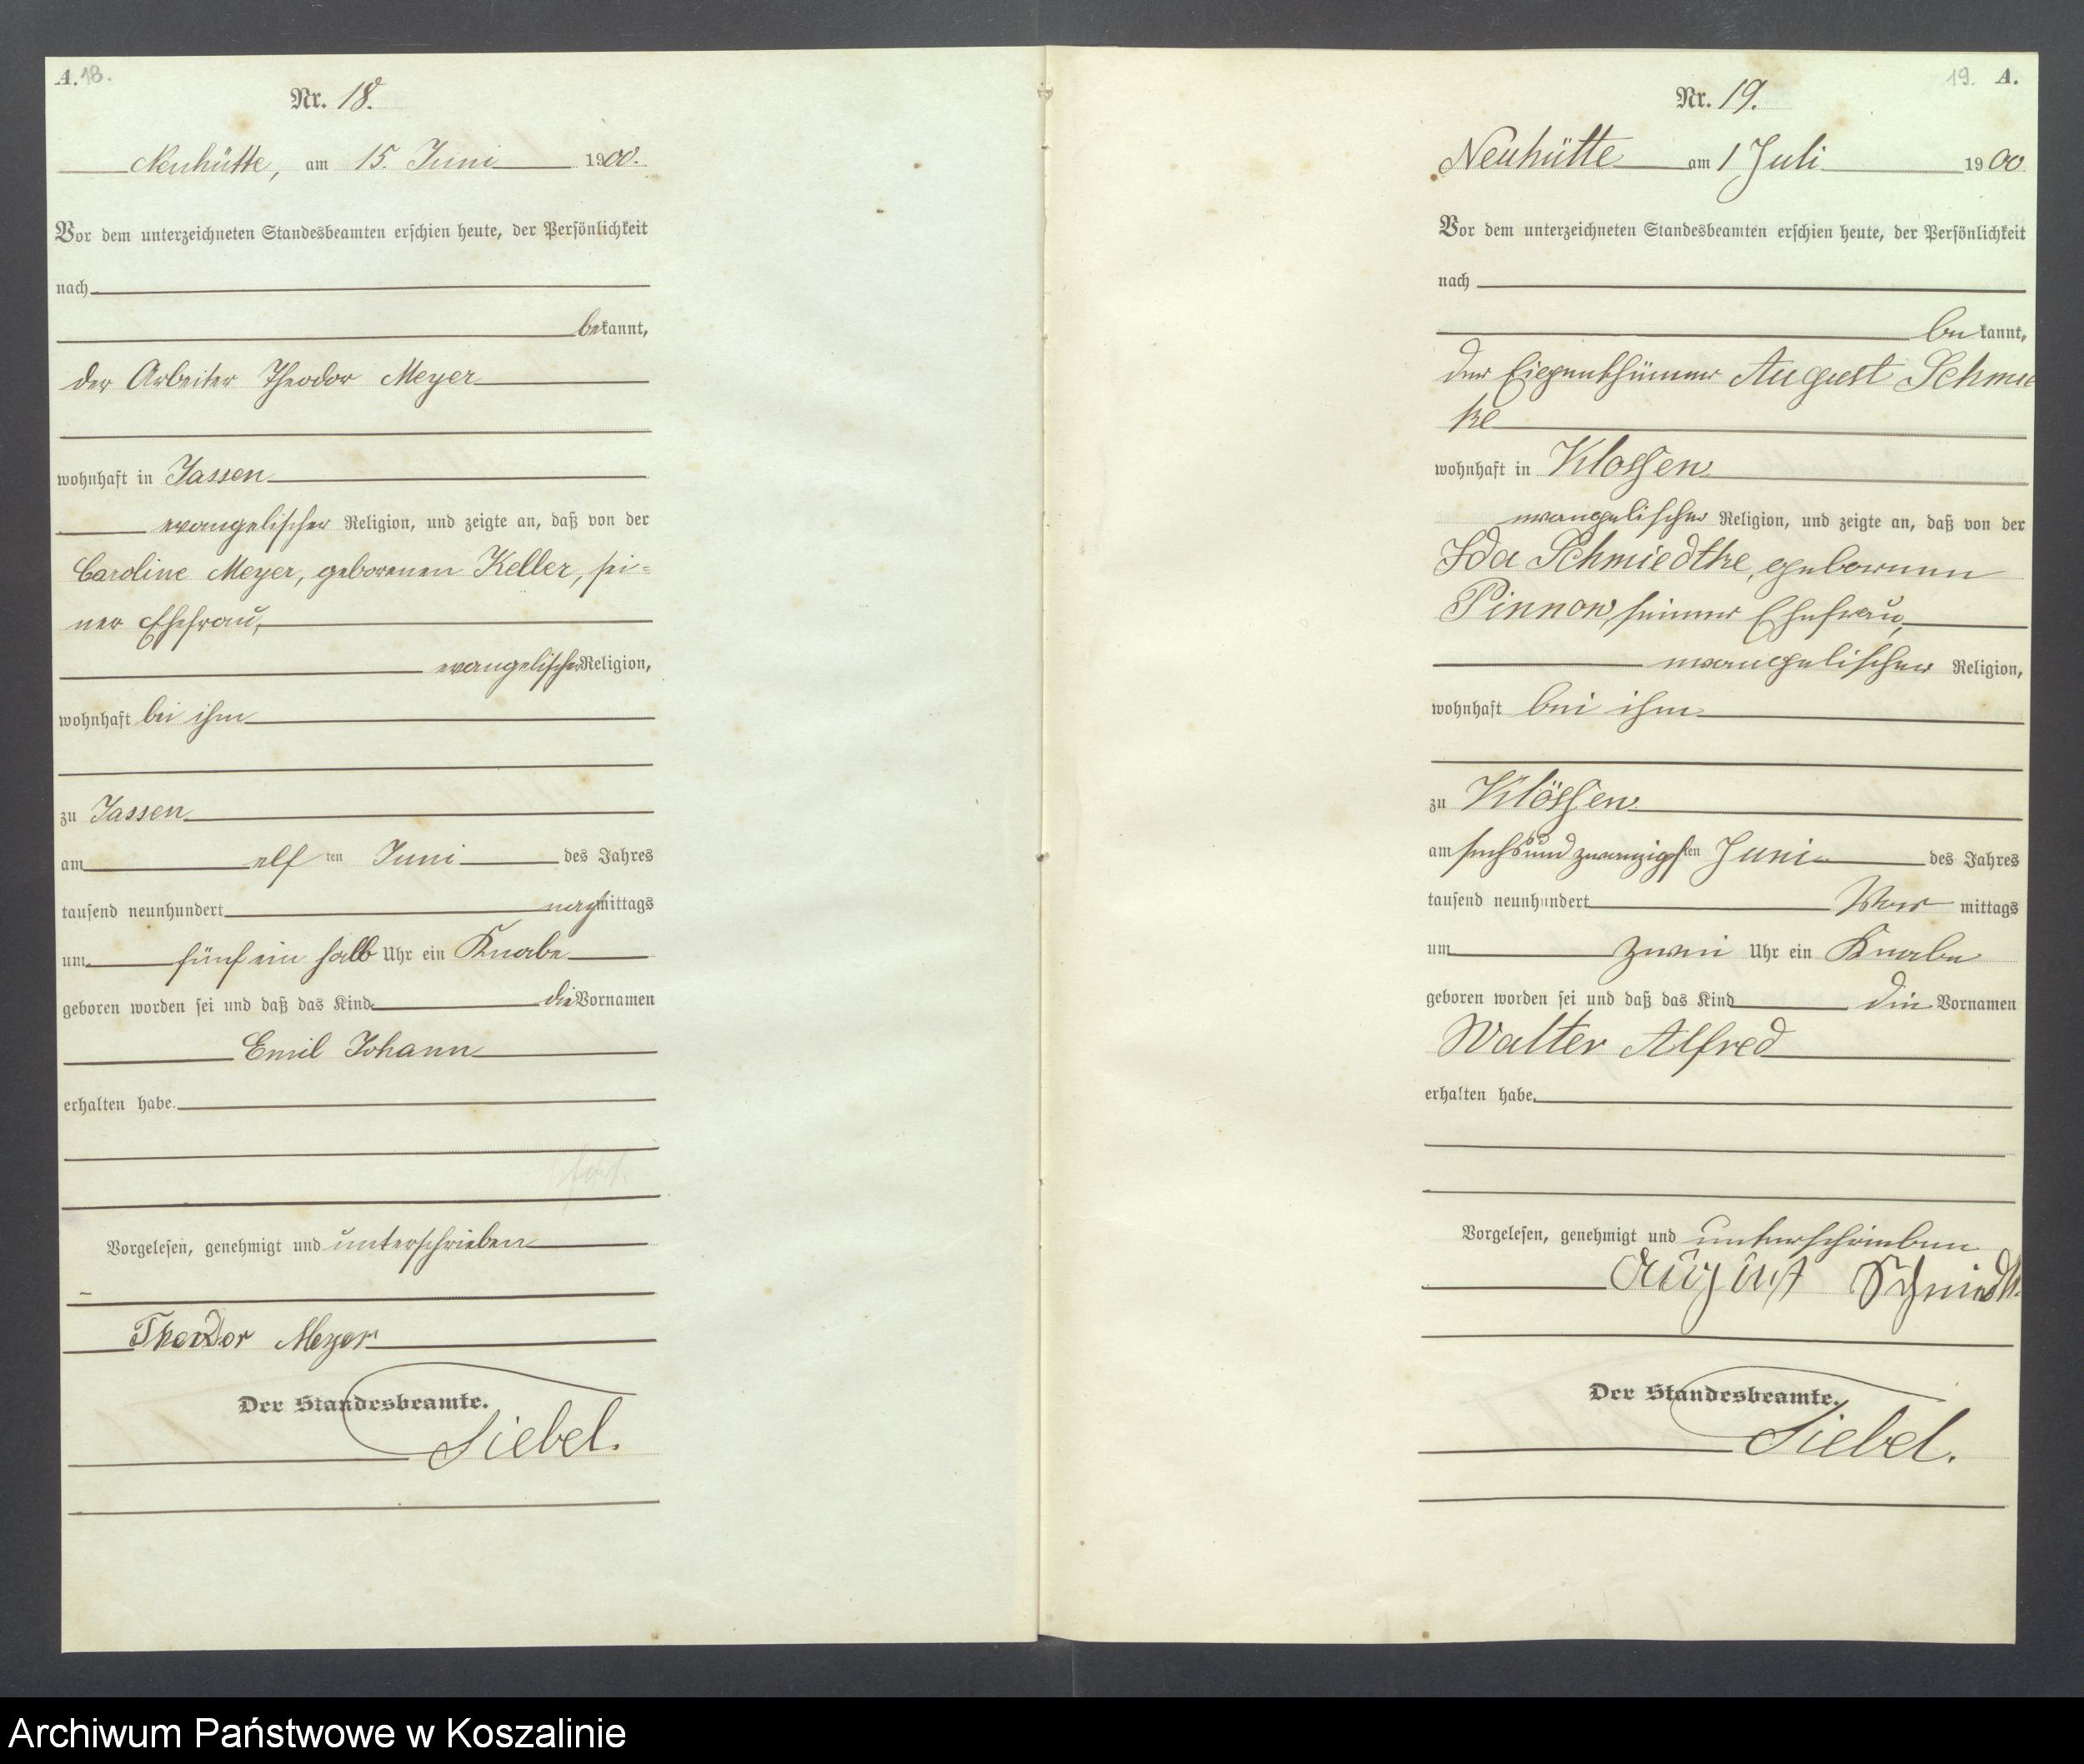 A. 18.
Nr. 18.
Neuhütte, am 15. Juni 1900.
Vor dem unterzeichneten Standesbeamten erschien heute, der Persönlichkeit
nach
bekannt,
der Arbeiter Theodor Meyer
wohnhaft in Jassen
evangelischer Religion, und zeigte an, daß von der
Caroline Meyer, geborenen Keller, sei-
ner Ehefrau,
evangelischer Religion,
wohnhaft bei ihm
zu Jassen
am elf ten Juni des Jahres
tausend neunhundert nachmittags
um fünf ein halb Uhr ein Knabe
geboren worden sei und daß das Kind die Vornamen
Emil Johann
erhalten habe.
Vorgelesen, genehmigt und unterschrieben
Theodor Meyer
Der Standesbeamte.
Siebel.
19. A.
Nr. 19.
Neuhütte am 1 Juli 1900
Vor dem unterzeichneten Standesbeamten erschien heute, der Persönlichkeit
nach
bekannt,
der Eigenthümer August Schmie
ke
wohnhaft in Klossen
evangelischer Religion, und zeigte an, daß von der
Ida Schmiedtke, geborenen
Pinnow, seiner Ehefrau,
evangelischer Religion,
wohnhaft bei ihm
zu Klössen
am sechsundzwanzigsten Juni des Jahres
tausend neunhundert Vor mittags
um zwei Uhr ein Knabe
geboren worden sei und daß das Kind die Vornamen
Walter Alfred
erhalten habe.
Vorgelesen, genehmigt und unterschrieben
August Schmiedtk
Der Standesbeamte.
Siebel.
Archiwum Państwowe w Koszalinie